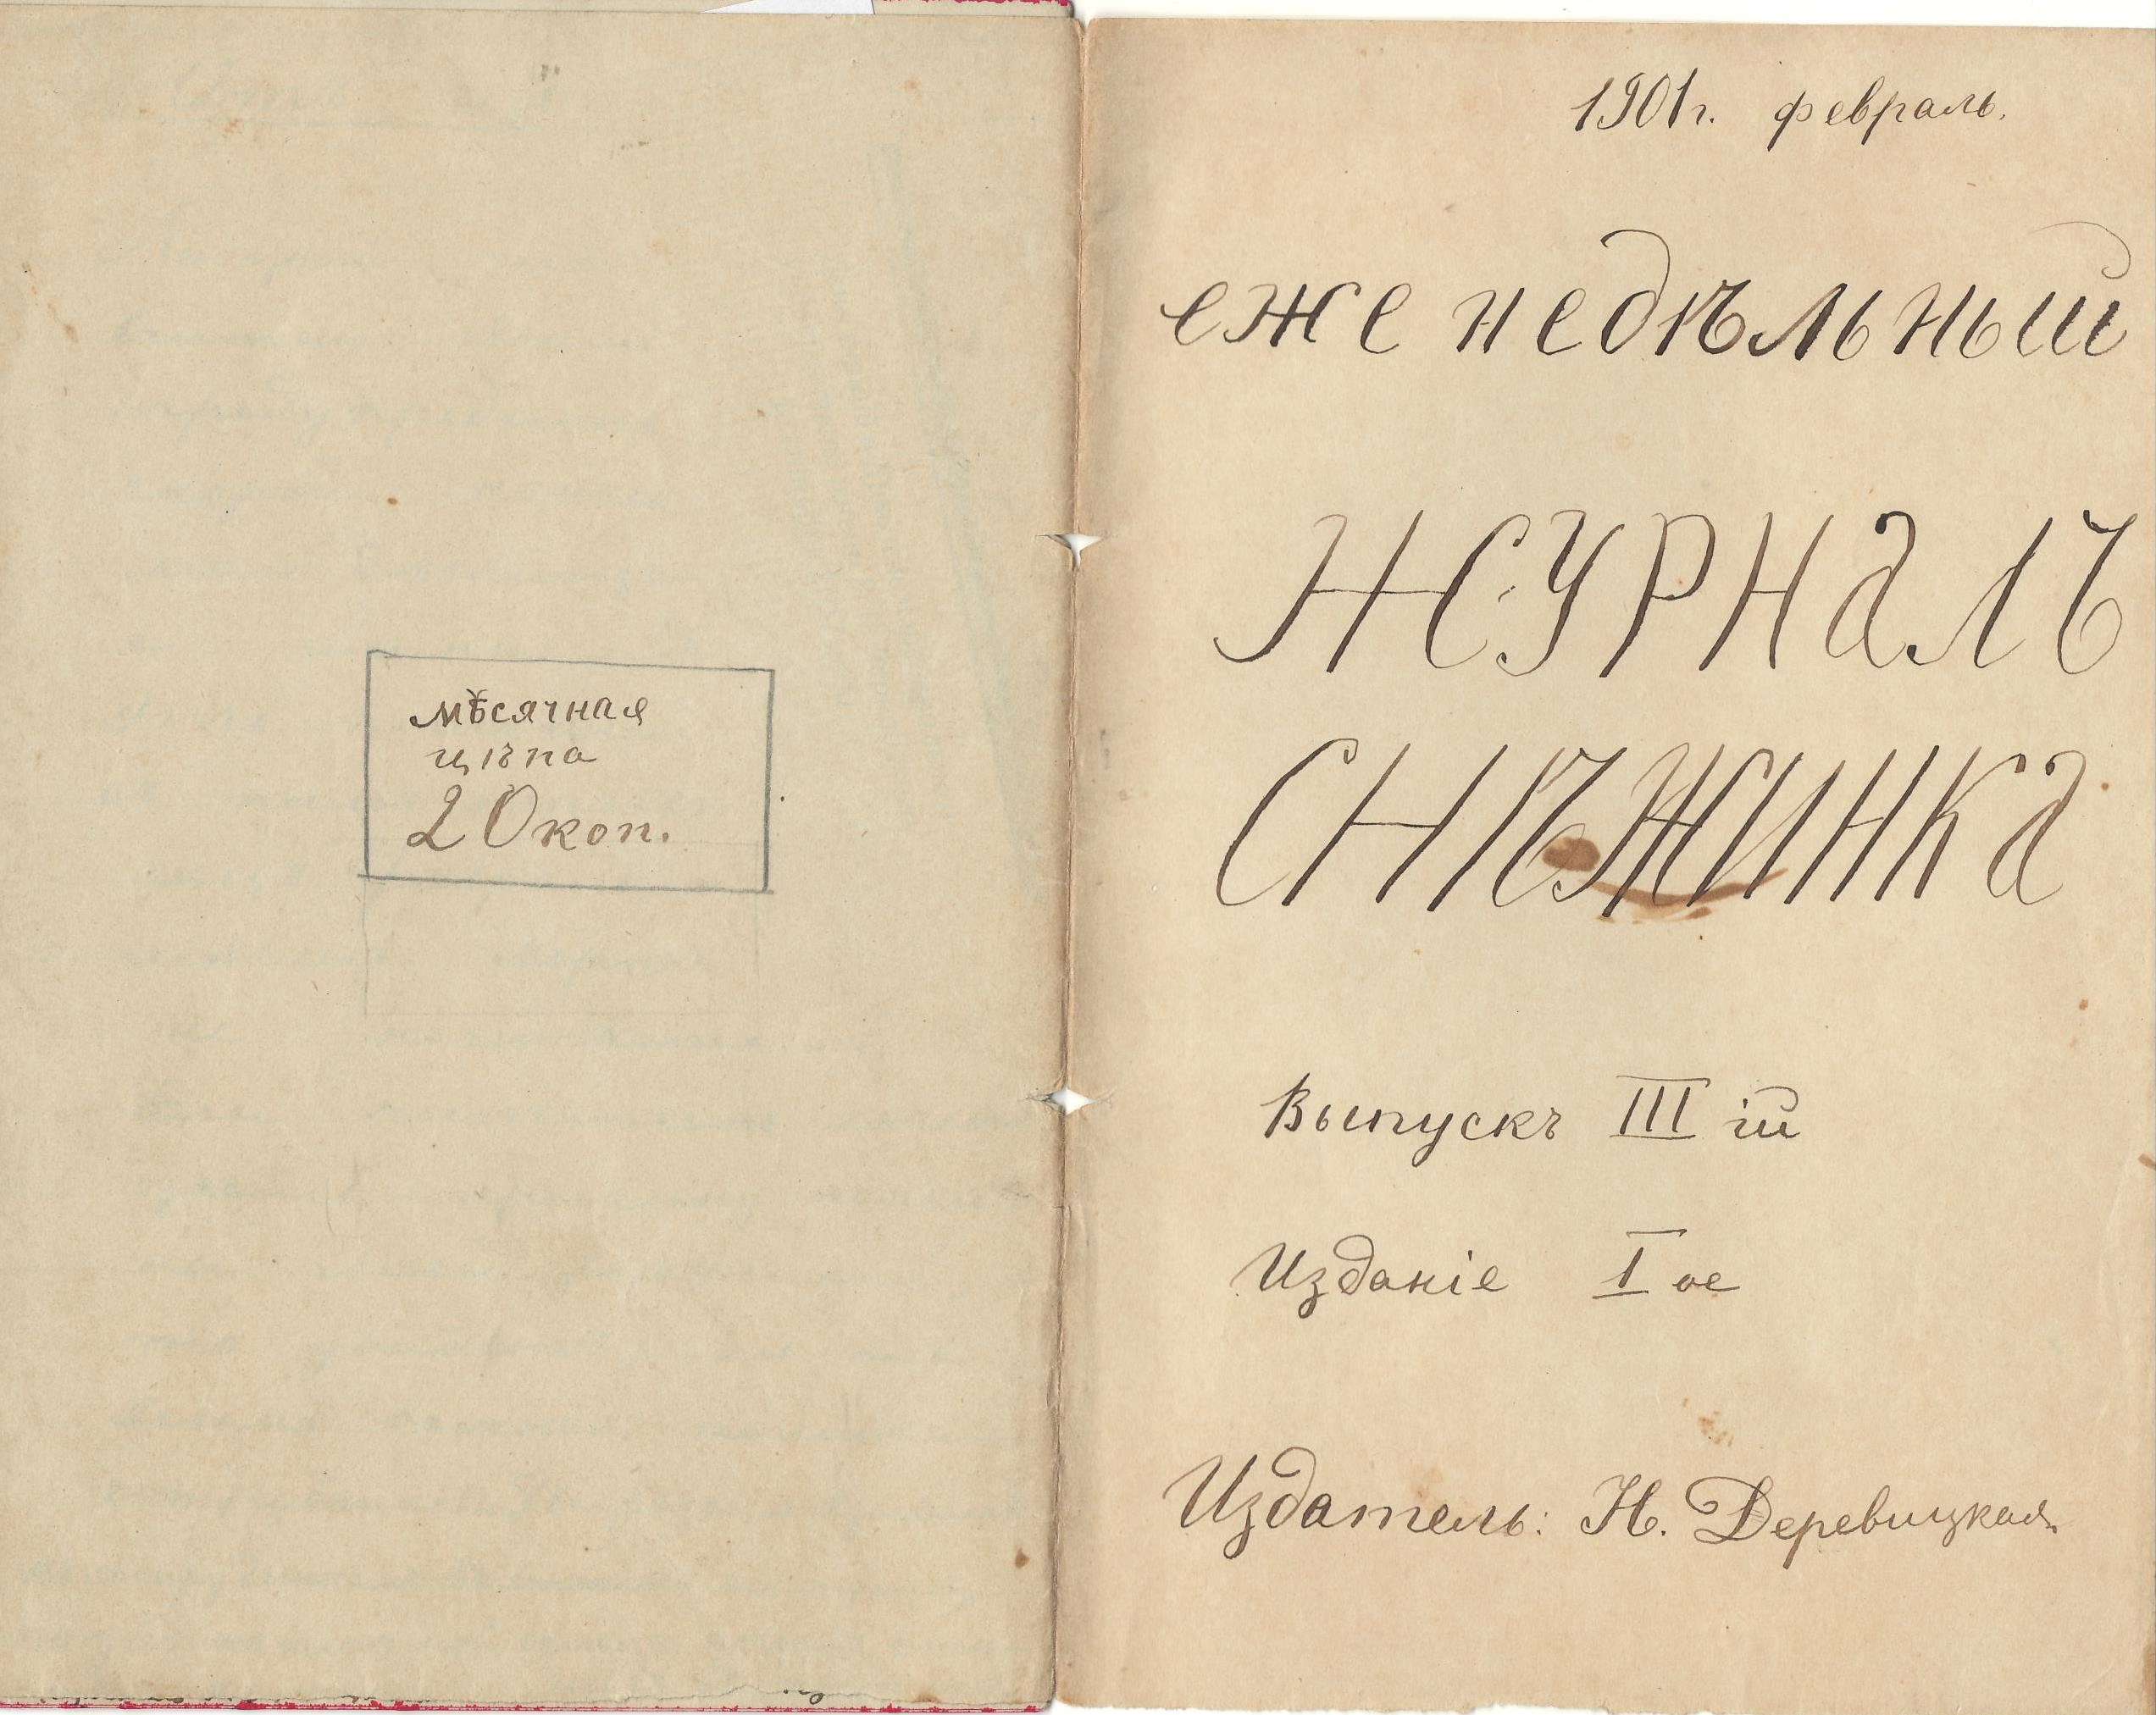 мѣсячная
цѣна
20 коп.
1901 г. февраль.
еженедѣльный
ЖУРНАЛЪ
СНѢЖИНКА
Выпускъ III ій
Изданіе I ое
Издатель: Н. Деревицкая